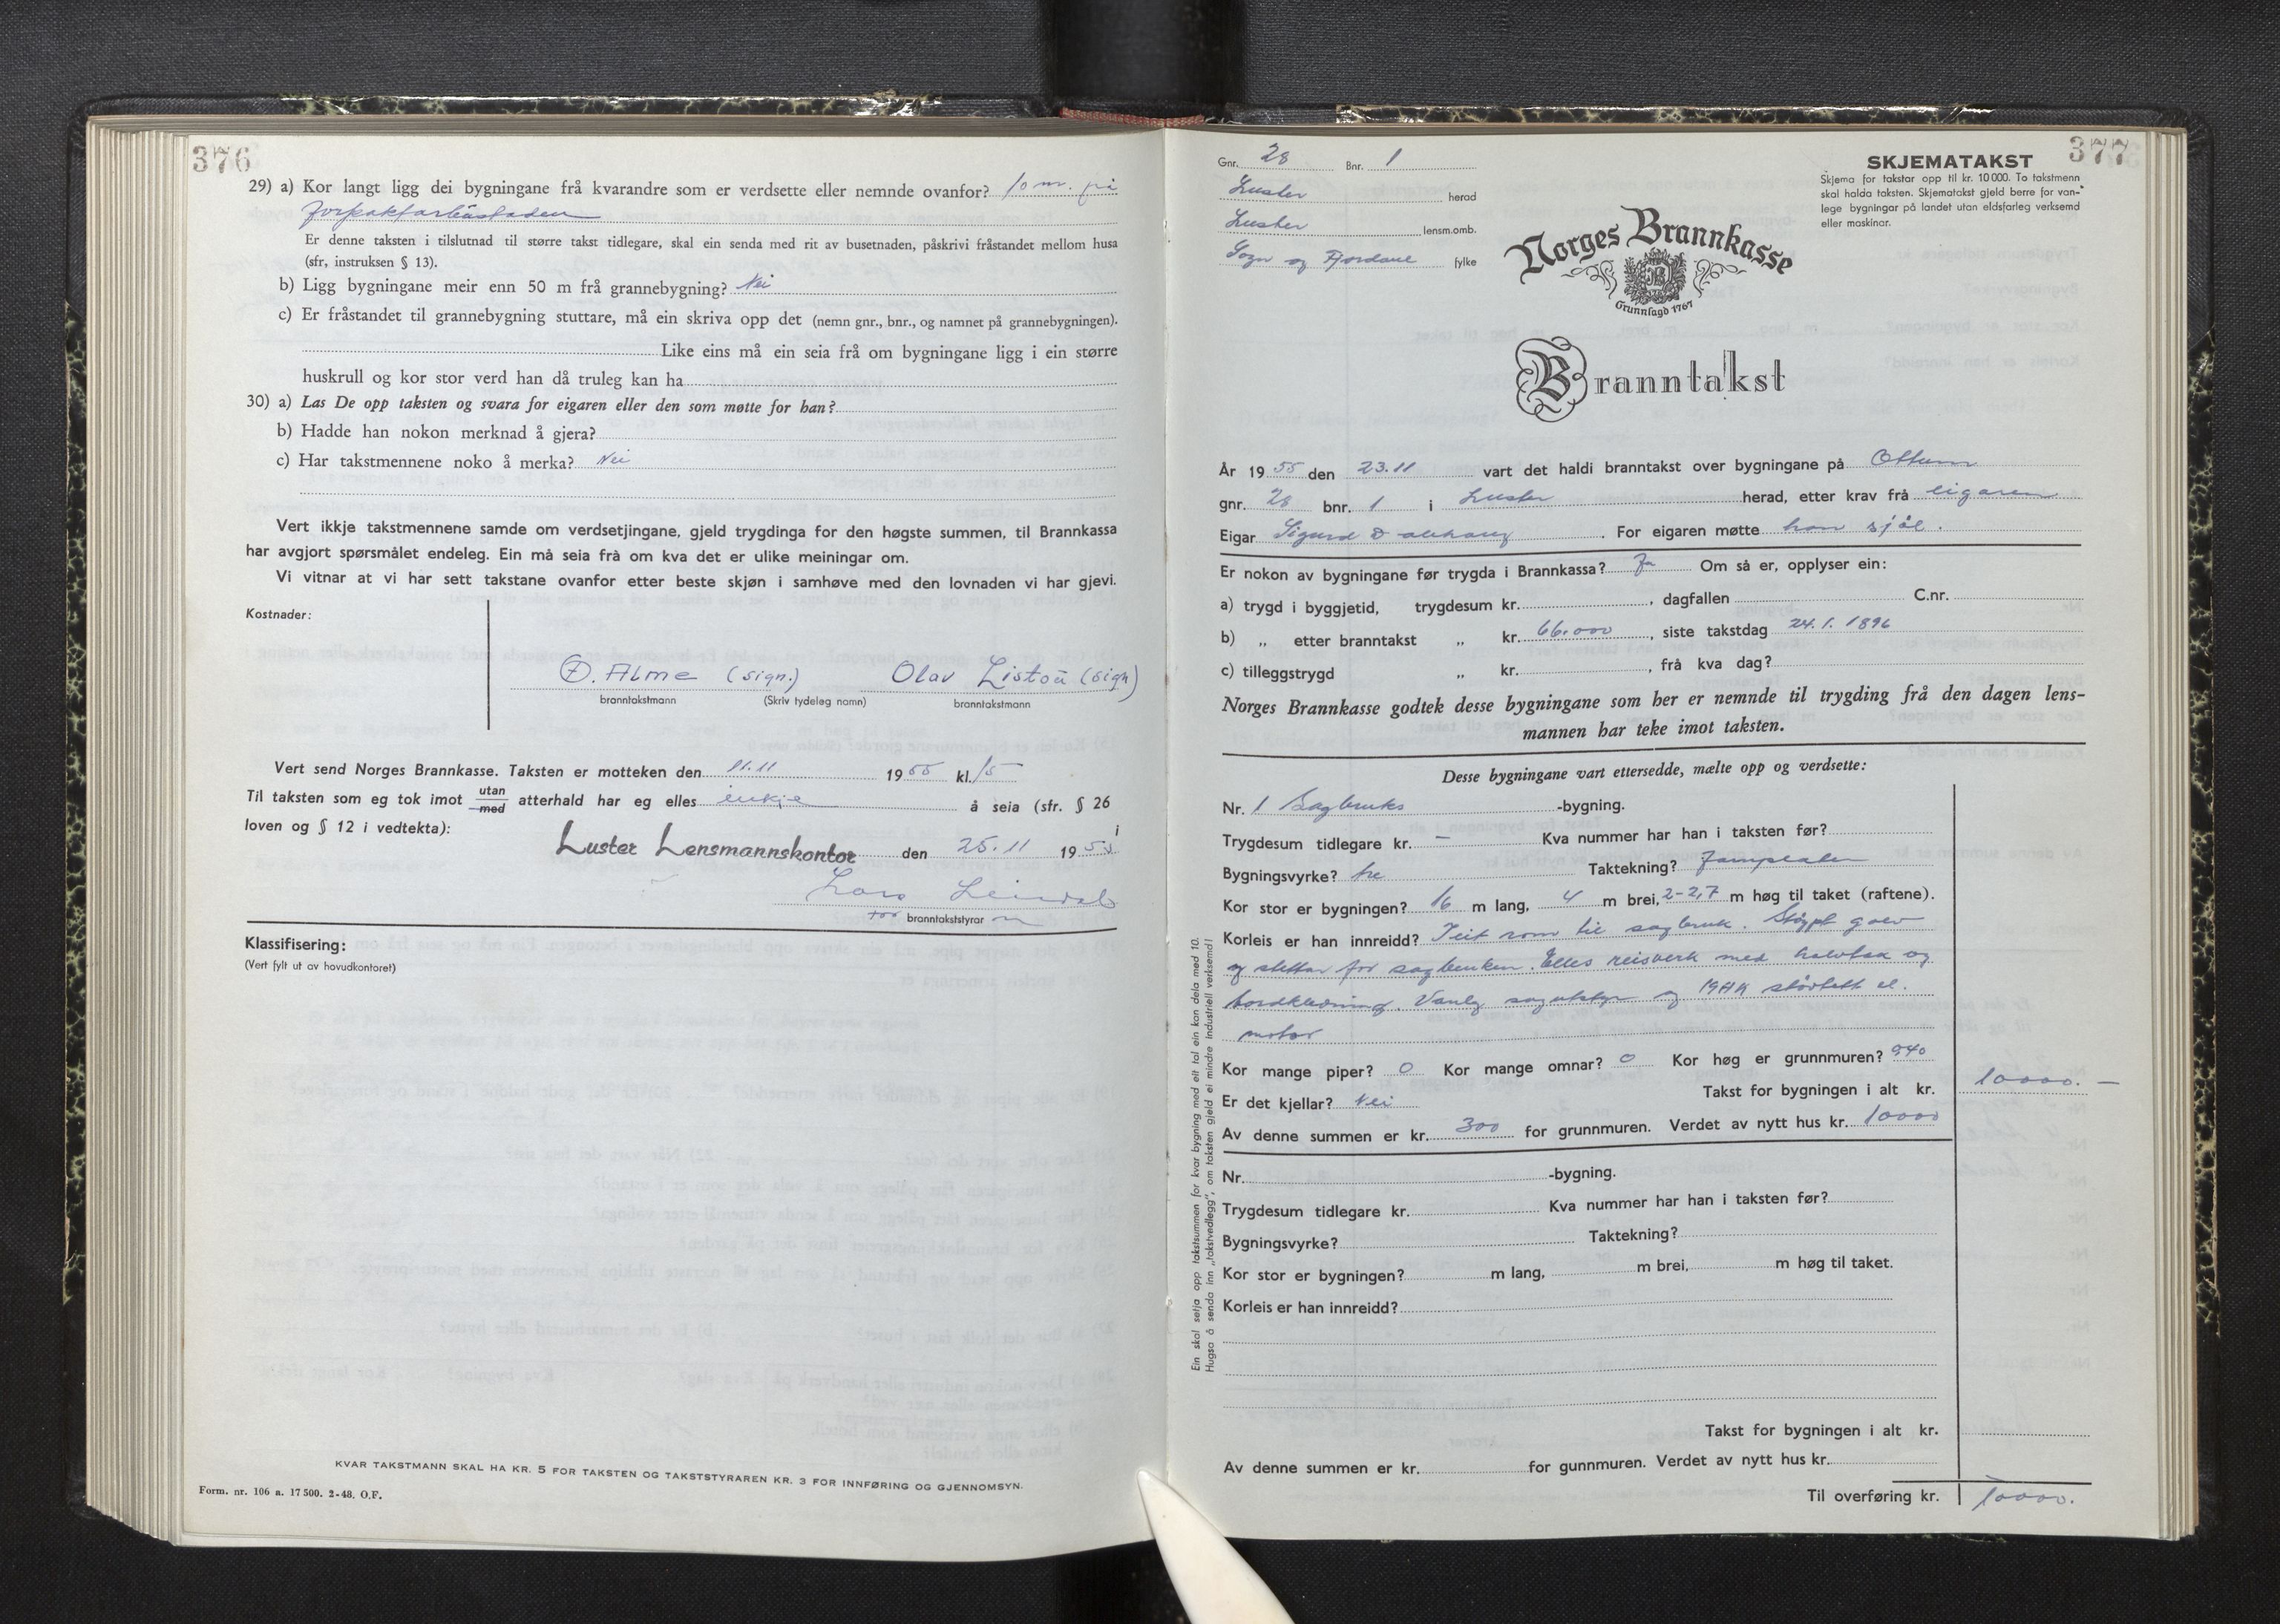 376
29) a) Kor langt ligg dei bygningane frå kvarandre som er verdsette eller nemnde ovanfor? 10 m. frå
forpaktarbustaden
Er denne taksten i tilslutnad til større takst tidlegare, skal ein senda med rit av busetnaden, påskrivi fråstandet mellom husa
(sfr, instruksen § 13).
b) Ligg bygningane meir enn 50 m frå grannebygning? Nei
c) Er fråstandet til grannebygning stuttare, må ein skriva opp det (nemn gnr., bnr., og namnet på grannebygningen).
Like eins må ein seia frå om bygningane ligg i ein større
huskrull og kor stor verd han då truleg kan ha
30) a) Las De opp taksten og svara for eigaren eller den som møtte for han?
b) Hadde han nokon merknad å gjera?
c) Har takstmennene noko å merka? Nei
Vert ikkje takstmennene samde om verdsetjingane, gjeld trygdinga for den høgste summen, til Brannkassa
har avgjort spørsmålet endeleg. Ein må seia frå om kva det er ulike meiningar om.
Vi vitnar at vi har sett takstane ovanfor etter beste skjøn i samhøve med den lovnaden vi har gjevi.
Kostnader:
Ø. Alme (sign.) Olav Listou (sign)
branntakstmann (Skriv tydeleg namn) branntakstmann
Vert send Norges Brannkasse. Taksten er motteken den 11.11 1955 kl. 15
Til taksten som eg tok imot utan/med atterhald har eg elles inkje å seia (sfr. § 26 i
loven og § 12 i vedtekta):
Luster Lensmannskontor den 25.11 1955
Lars
for branntakststyrar
Klassifisering:
(Vert fylt ut av hovudkontoret)
KVAR TAKSTMANN SKAL HA KR. 5 FOR TAKSTEN OG TAKSTSTYRAREN KR. 3 FOR INNFØRING OG GJENNOMSYN.
Form. nr. 106 a. 17 500. 2-48. O.F.
377
Gnr. 28 Bnr. 1
Luster herad
Luster lensm.omb.
Sogn og Fjordane fylke
SKJEMATAKST
Skjema for takstar opp til kr. 10 000. To takstmenn
skal halda taksten. Skjematakst gjeld berre for van-
lege bygningar på landet utan eldsfarleg verksemd
eller maskinar.
Norges Brannkasse
Grunnlagd 1767
Branntakst
År 1955 den 23.11 vart det haldi branntakst over bygningane på Ottum
gnr. 28 bnr. 1 i Luster herad, etter krav frå eigaren
Eigar Sigurd Dalehaug. For eigaren møtte han sjøl.
Er nokon av bygningane før trygda i Brannkassa? Ja Om så er, opplyser ein:
a) trygd i byggjetid, trygdesum kr. , dagfallen C.nr.
b) „ etter branntakst „ kr. 66.000, siste takstdag 24.1.1896
c) tilleggstrygd „ kr. , frå kva dag?
Norges Brannkasse godtek desse bygningane som her er nemnde til trygding frå den dagen lens-
mannen har teke imot taksten.
Desse bygningane vart ettersedde, mælte opp og verdsette:
Nr. 1 Sagbruks -bygning.
Trygdesum tidlegare kr. — Kva nummer har han i taksten før?
Bygningsvyrke? tre Taktekning? Jarnplater
Kor stor er bygningen? 16 m lang, 4 m brei, 2-2,7 m høg til taket (raftene).
Korleis er han innreidd? Eitt rom til sagbruk. Støypt golv
og støttar for sagbenken. Elles reisverk med halvtak og
bordkledning. Vanleg sagutstyr og 19HK støvtett el.
motor
Kor mange piper? 0 Kor mange omnar? 0 Kor høg er grunnmuren? 940
Er det kjellar? Nei Takst for bygningen i alt kr. 10000.—
Av denne summen er kr. 300 for grunnmuren. Verdet av nytt hus kr. 10000
Nr. -bygning.
Trygdesum tidlegare kr. Kva nummer har han i taksten før?
Bygningsvyrke? Taktekning?
Kor stor er bygningen? m lang, m brei, m høg til taket.
Korleis er han innreidd?
Takst for bygningen i alt kr.
Av denne summen er kr. for gunnmuren. Verdet av nytt hus kr.
Til overføring kr. 10000.
Ein skal setja opp takstsummen for kvar bygning med eit tal ein kan dela med 10.
Hugsa å senda inn „takstvedlegg", om taksten gjeld ei mindre industriell verksemd!